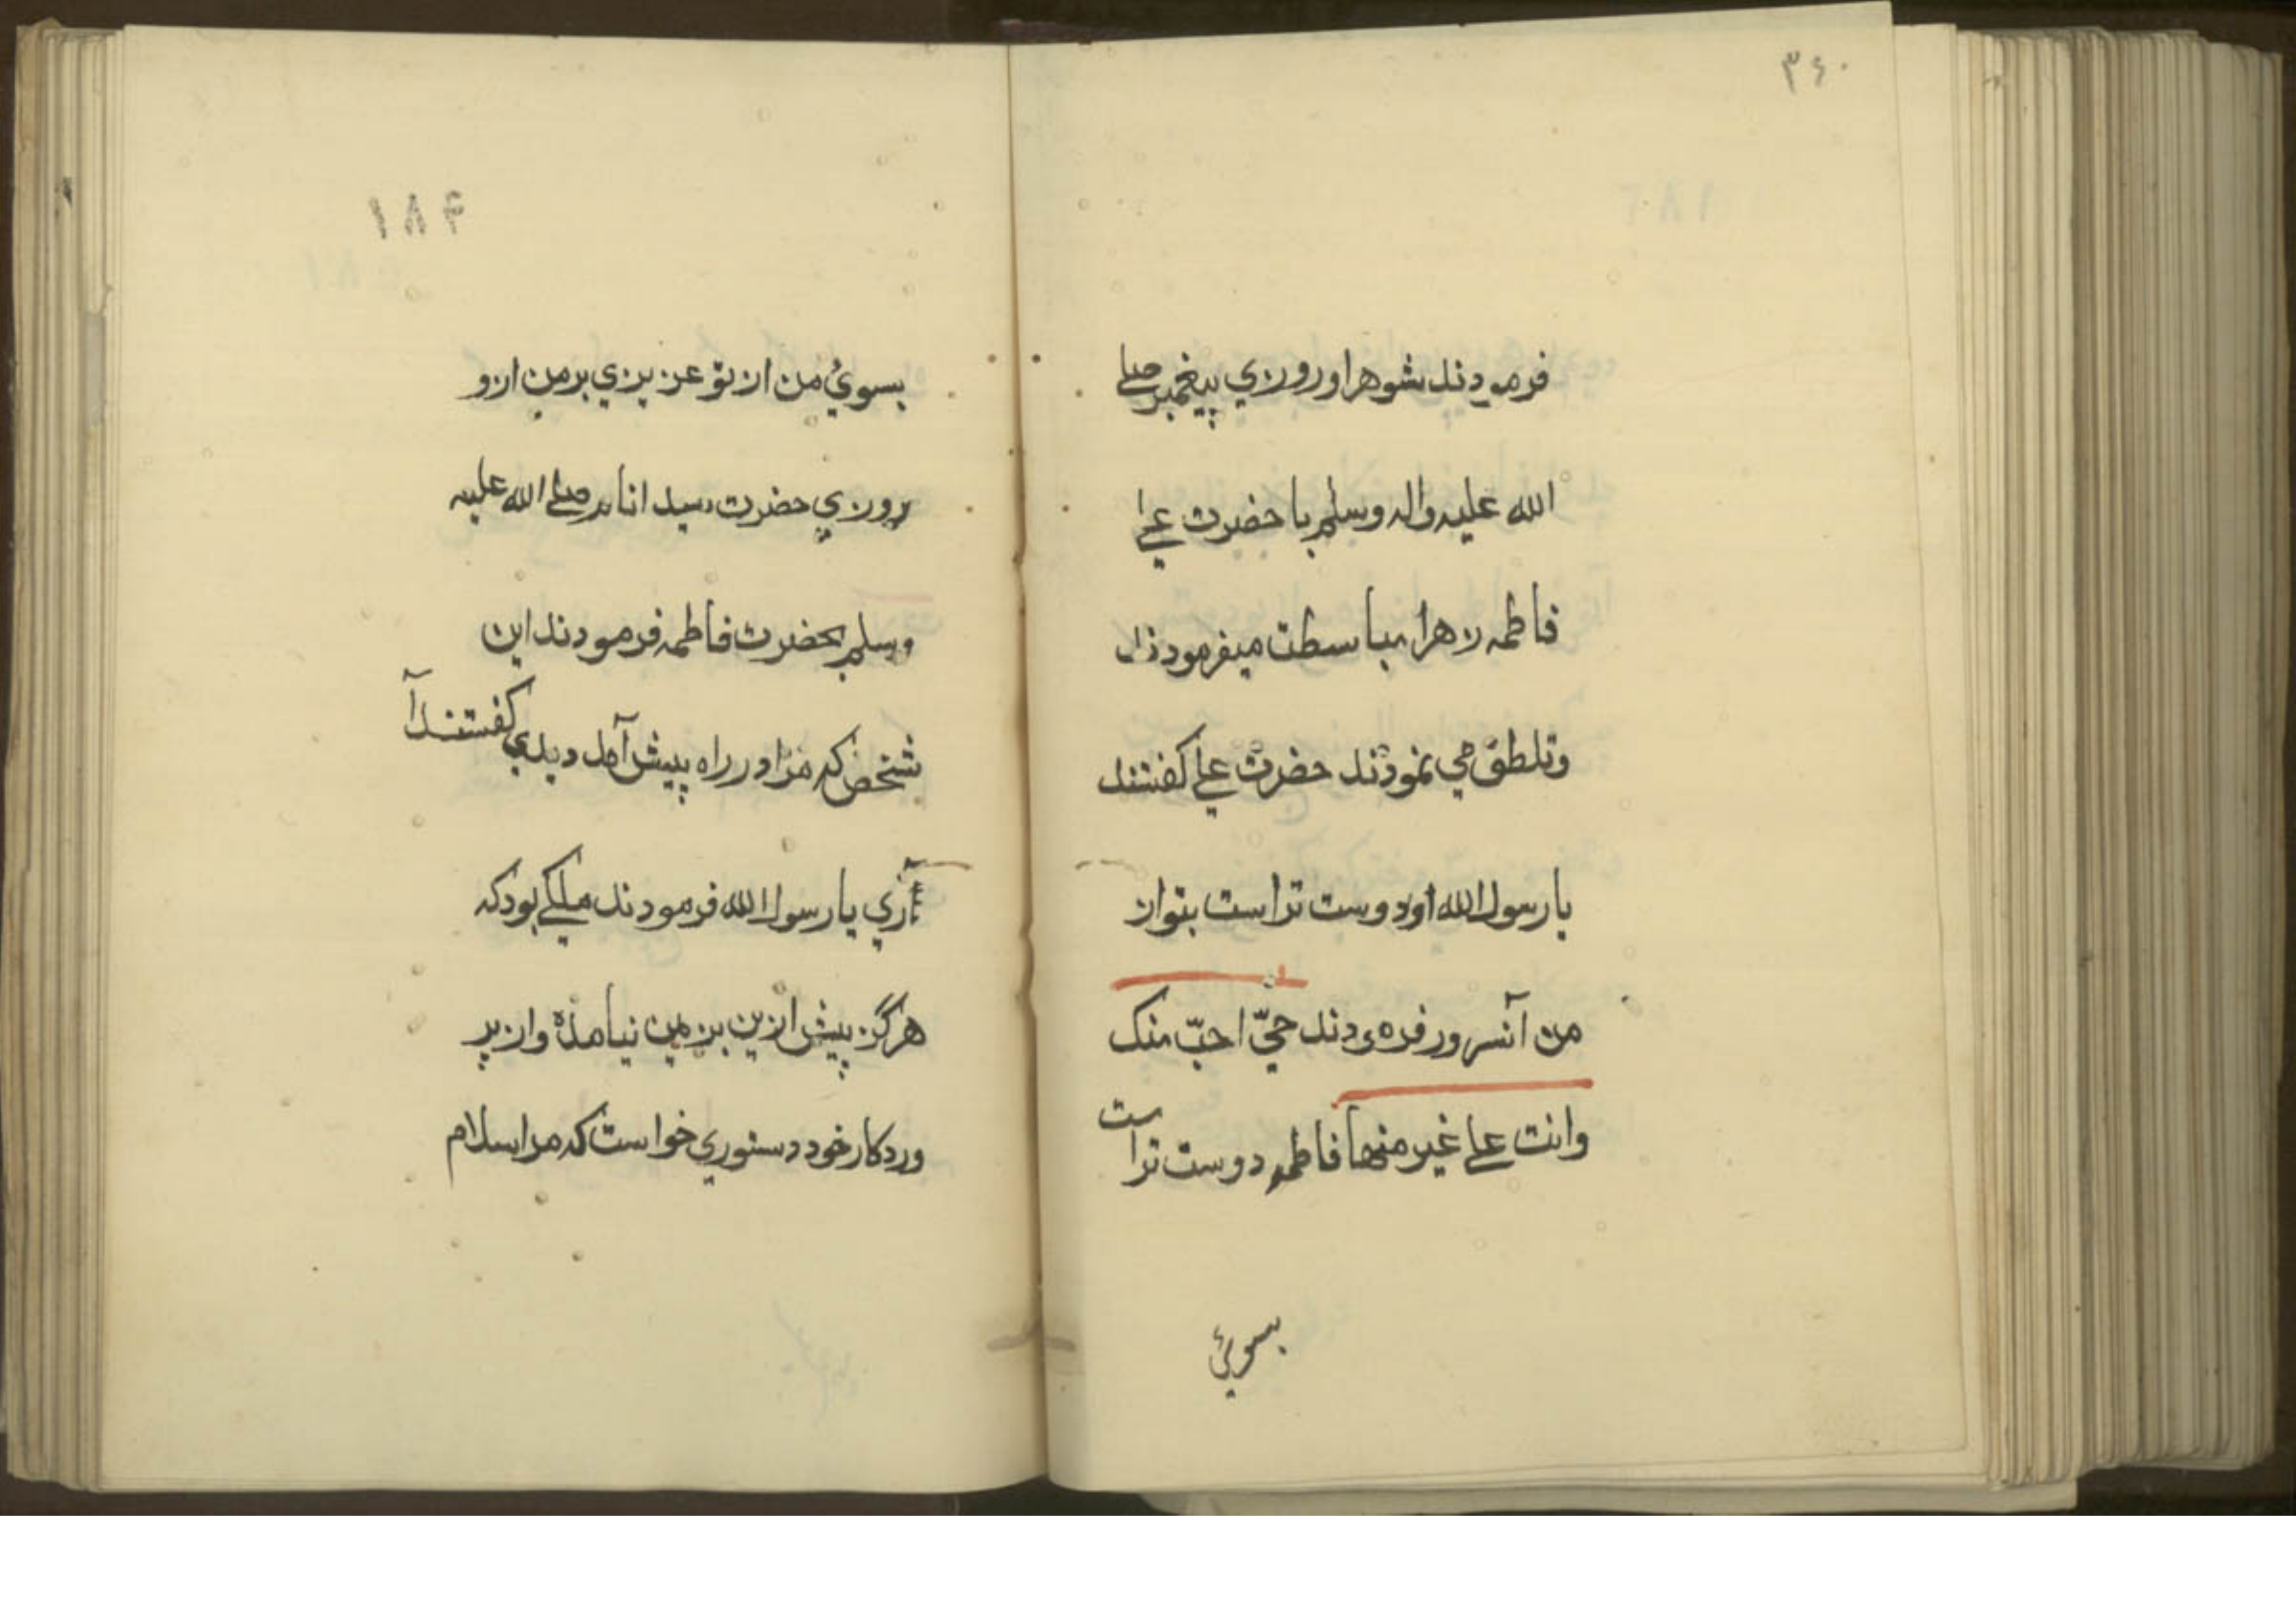 ۳۶۰
فرمودند شوهر او روزي پيغمبر صلے
الله عليه واله وسلم با حضرت علے
فاطمه زهرا مباسطت ميفرمودند
وتلطف مي نمودند حضرت علے كفتند
يا رسول الله او دوست تراست بتو از
من آنسرور فرمودند هيّ احبّ منك
وانت علے غير منها فاطمه دوست تراست
بسوئ
۱۸۴
بسوئ من از تو عزيزي بر من ازو
روزي حضرت سيد انام صلے الله عليه
وسلم بحضرت فاطمه فرمودند اين
شخص كه مرا در راه پيش آمد ديدي كفتند آ
آري يا رسول الله فرمودند ملكے بود كه
هرگز پيش ازين بزمين نيامده واز پر
وردكار خود دستوري خواست كه مرا سلام